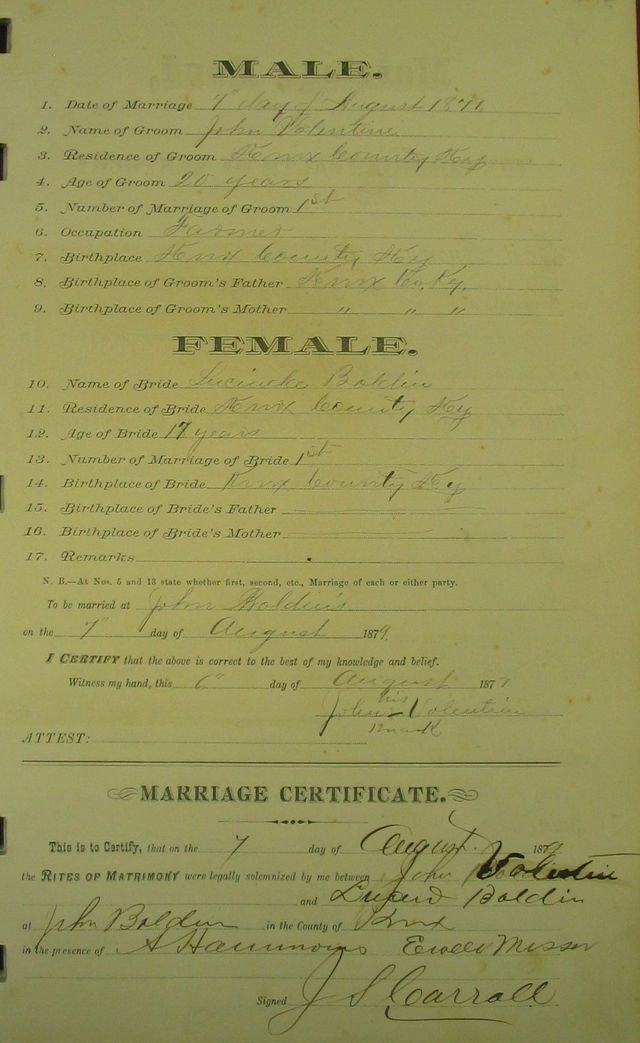 MALE.
1. Date of Marriage 7" day of August 1879
2. Name of Groom John Valentine
3. Residence of Groom Knox County Ky
4. Age of Groom 20 years
5. Number of Marriage of Groom 1st
6. Occupation Farmer
7. Birthplace Knox County Ky
8. Birthplace of Groom's Father Knox Co. Ky.
9. Birthplace of Groom's Mother " " "
FEMALE.
10. Name of Bride Boldin
11. Residence of Bride Knox County Ky
12. Age of Bride 17 years
13. Number of Marriage of Bride 1st
14. Birthplace of Bride Knox County Ky
15. Birthplace of Bride's Father
16. Birthplace of Bride's Mother
17. Remarks
N. B.—At Nos. 5 and 13 state whether first, second, etc., Marriage of each or either party.
To be married at John Boldin's
on the 7" day of August 1879.
I CERTIFY that the above is correct to the best of my knowledge and belief.
Witness my hand, this 6" day of August 1879
his
John Valentine
mark
ATTEST:
MARRIAGE CERTIFICATE.
This is to Certify, that on the 7 day of August 1879
the RITES OF MATRIMONY were legally solemnized by me between John Valentine
and Boldin
at John Boldin in the County of Knox
in the presence of Hammons
Signed J S Carroll